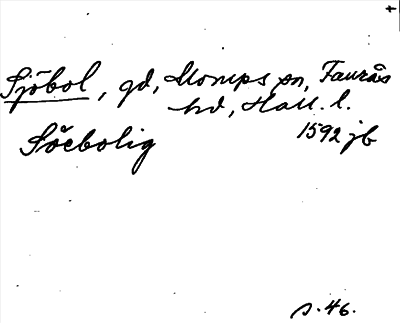 Sjöbol, gd, Morups sn, Faurås
hd, Hall. l.
Söebolig 1592 jb
s. 46.